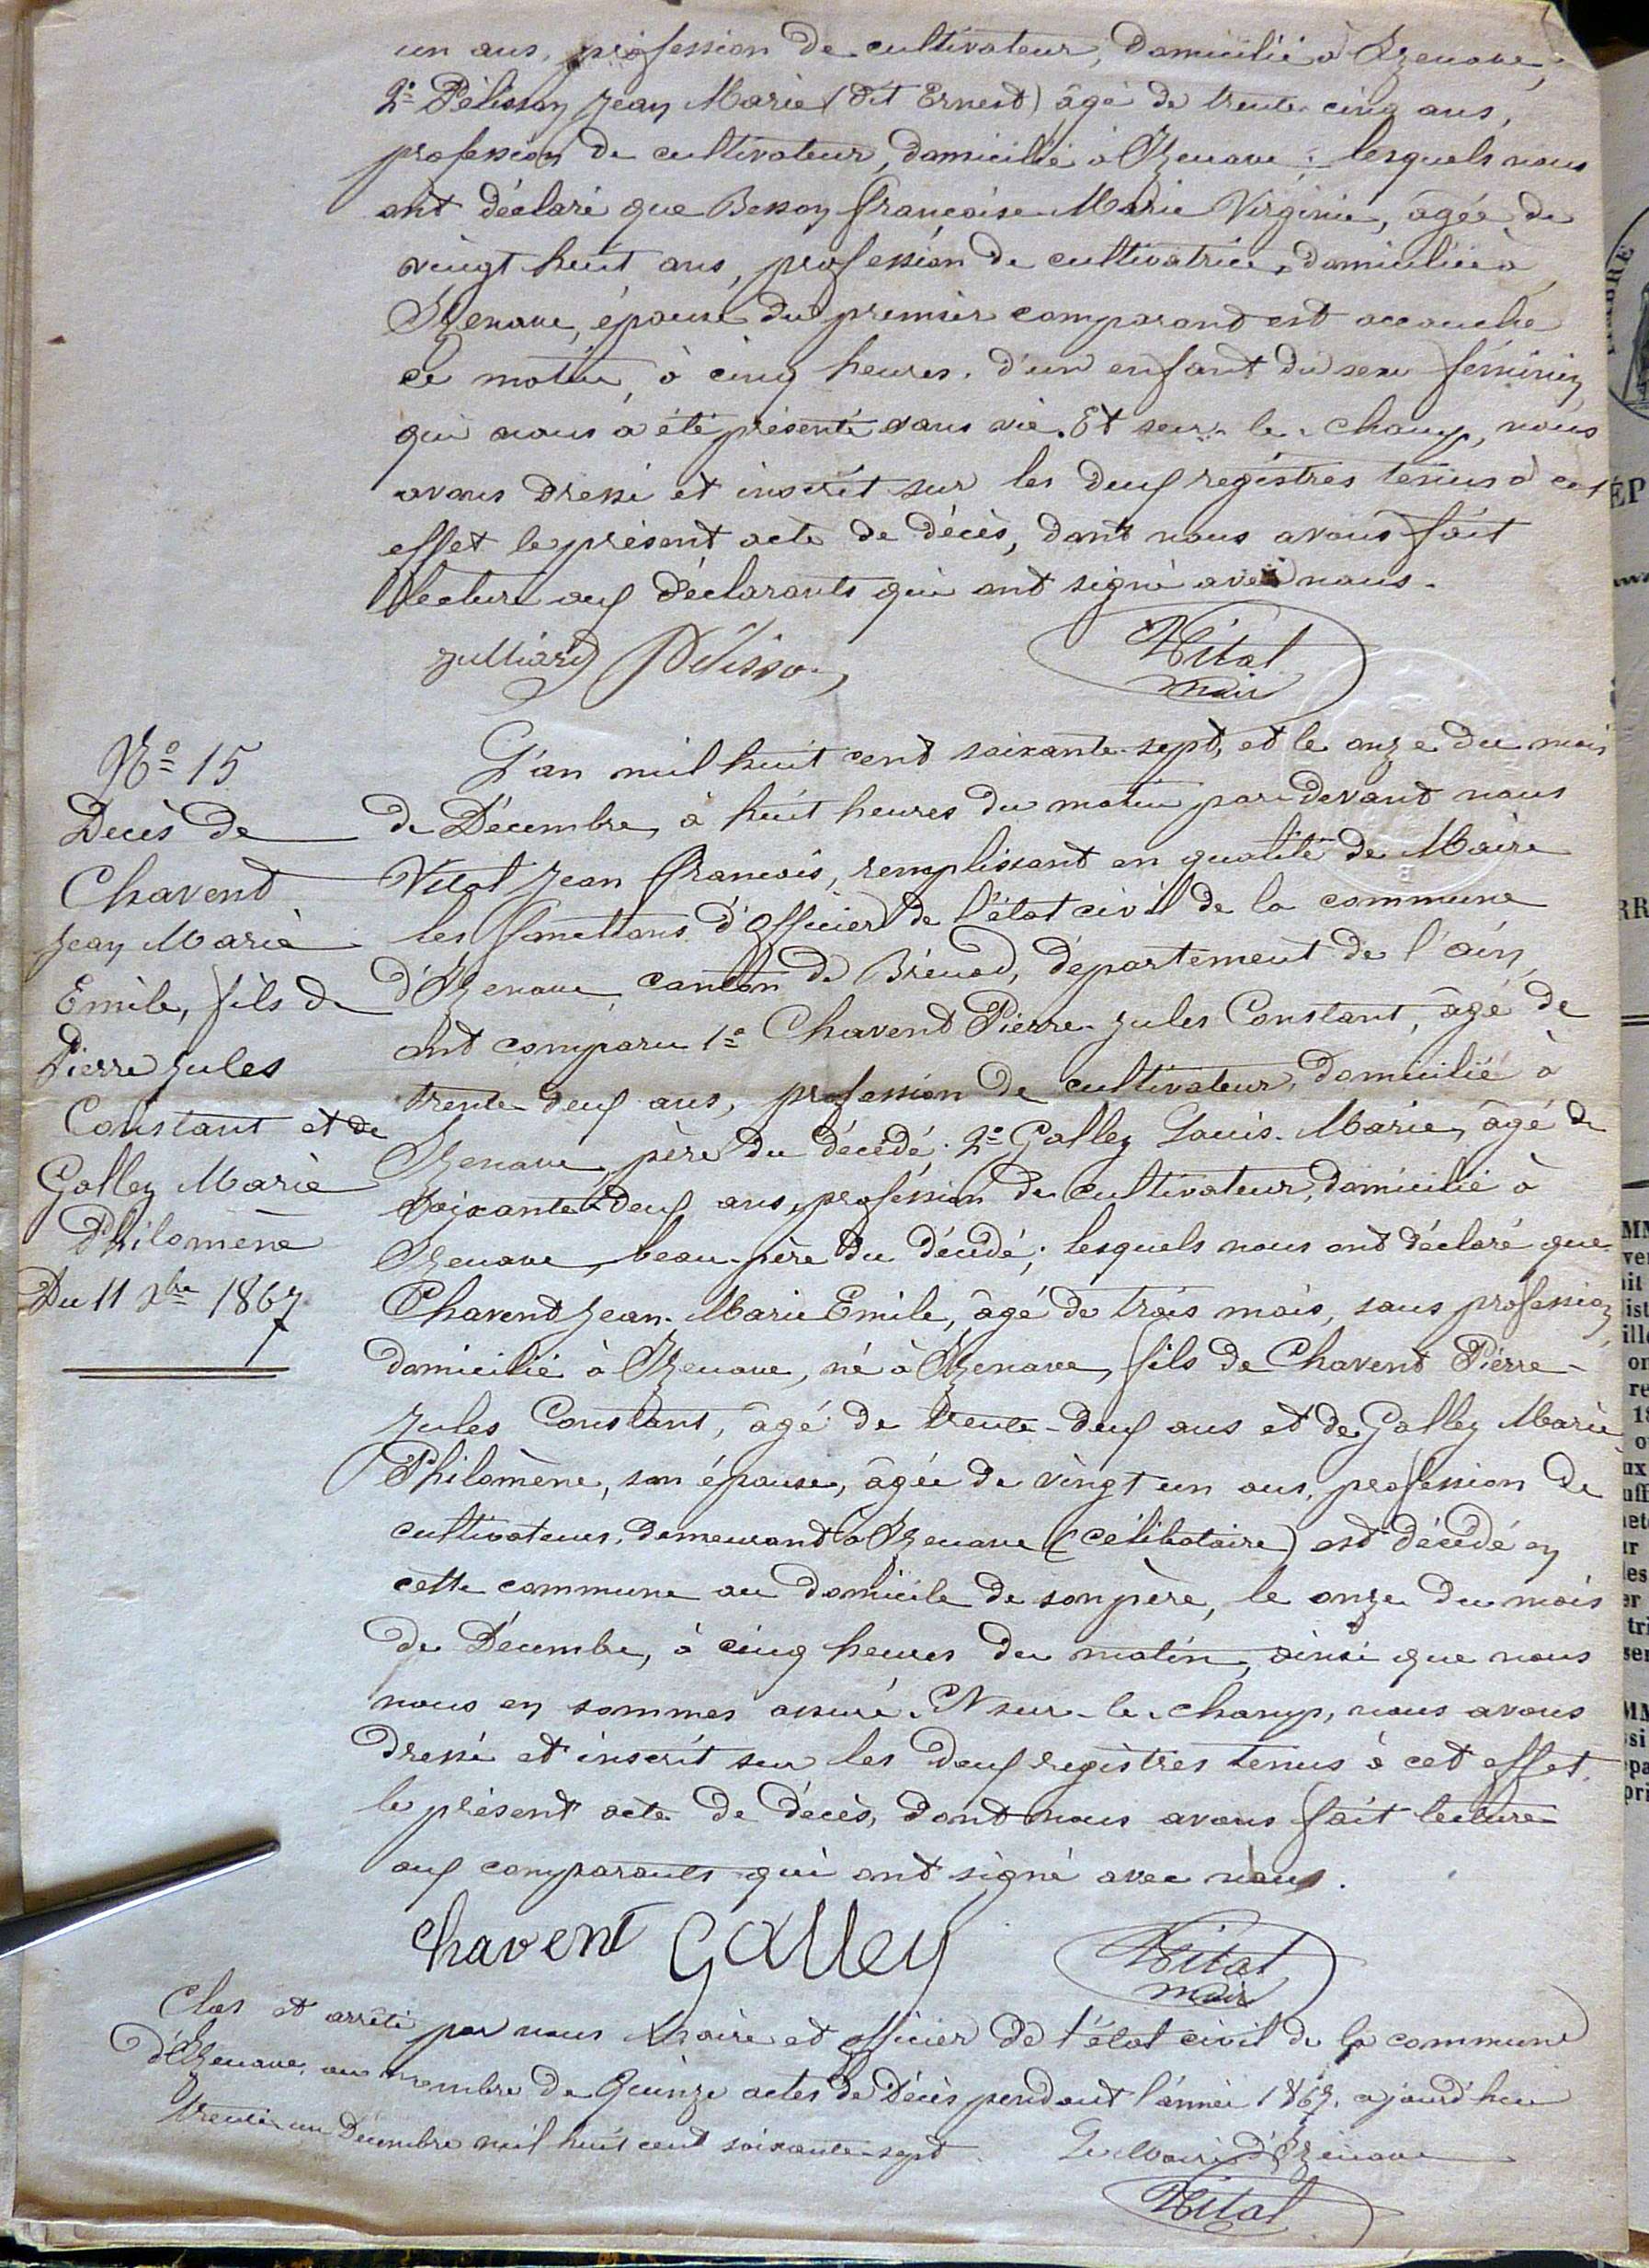 un ans, profession de cultivateur, domicilié à Izenave,
2° Pélisson Jean Marie (dit Ernest) âgé de trente cinq ans,
profession de cultivateur, domicilié à Izenave ; lesquels nous
ont déclaré que Besson Françoise Marie Virginie, âgée de
vingt huit ans, profession de cultivatrice, domiciliée à
Izenave, épouse du premier comparant est accouchée
ce matin, à cinq heures, d'un enfant du sexe féminin
qui nous a été présenté sans vie. Et sur le champ, nous
avons dressé et inscrit sur les deux registres tenus à cet
effet le présent acte de décès, dont nous avons fait
lecture aux déclarants qui ont signé avec nous.
Julliard Pélisson
Vital
mair
N° 15
Decès de
Chavent
Jean Marie
Emile, fils de
Pierre Jules
Constant et de
Galley Marie
Philomène
Du 11 Xbre 1867
L'an mil huit cent soixante-sept, et le onze du mois
de Décembre, à huit heures du matin par devant nous
Vital Jean François, remplissant en qualité de Maire
les fonctions d'Officier de l'état civil de la commune
d'Izenave canton de Brénod, département de l'ain
ont comparu 1° Chavent Pierre-Jules Constant, âgé de
trente-deux ans, profession de cultivateur, domicilié à
Izenave père du décédé. 2° Galley Louis-Marie, âgé de
soixante-deux ans, profession de cultivateur, domicilié à
Izenave, beau-père du décédé ; lesquels nous ont déclaré que
Chavent Jean-Marie Emile, âgé de trois mois, sans profession,
domicilié à Izenave, né à Izenave, fils de Chavent Pierre-
Jules Constant, âgé de trente-deux ans et de Galley Marie
Philomène, son épouse, âgée de vingt un ans, profession de
cultivateurs, demeurant à Izenave (célibataire) est décédé en
cette commune au domicile de son père, le onze du mois
de Décembre, à cinq heures du matin, ainsi que nous
nous en sommes assuré. Et sur-le-champ, nous avons
dressé et inscrit sur les deux registres tenus à cet effet.
le présent acte de décès, dont nous avons fait lecture
aux comparants qui ont signé avec nous.
Chavent Galley
Vital
mair
Clos et arrêté par nous Maire et officier de l'état civil de la commune
d'Izenave, au nombre de Quinze actes de Décès pendant l'année 1867. ajourd'hui
trente-un Décembre mil huit cent soixante-sept.
Le Maire d'Izenave
Vital